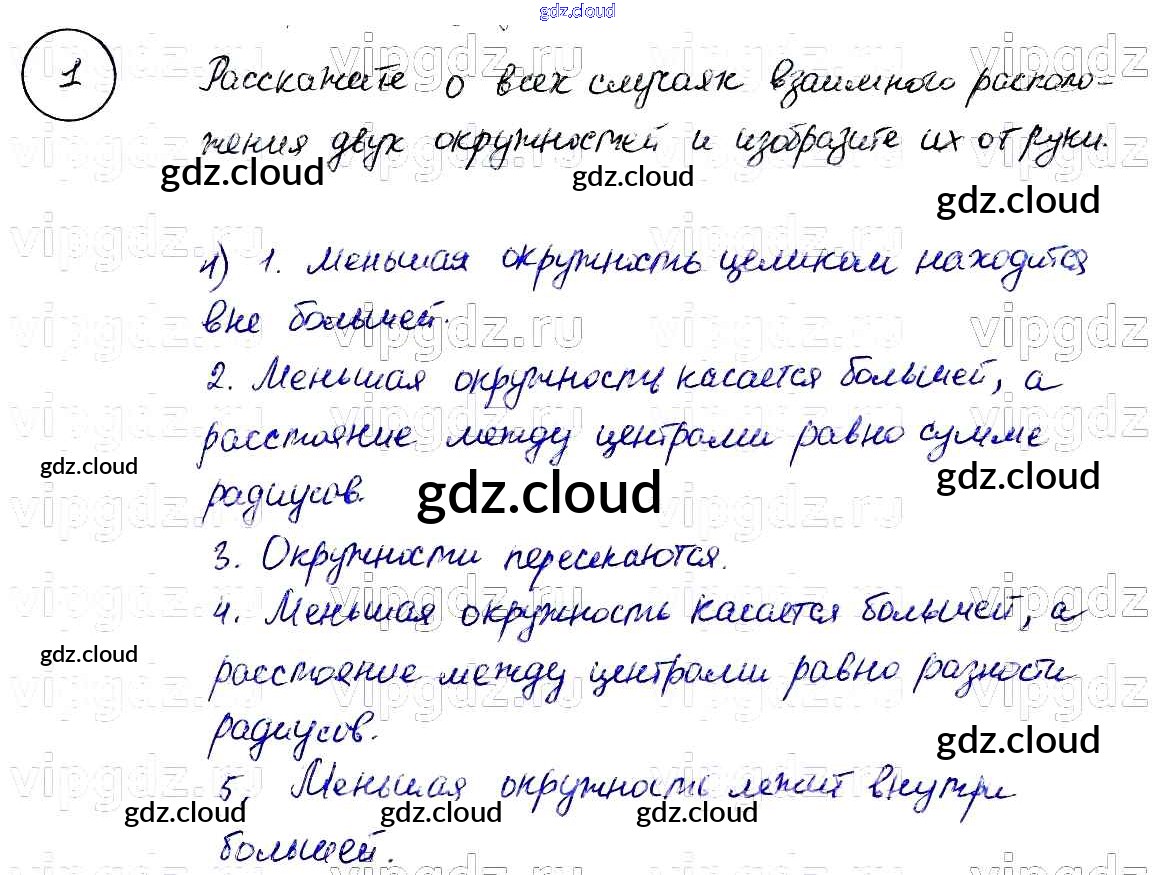 gdz.cloud
1 Расскажите о всех случаях взаимного располо-
жения двух окружностей и изобразите их от руки.
gdz.cloud gdz.cloud gdz.cloud
1) 1. Меньшая окружность целиком находится
вне большей.
2. Меньшая окружность касается большей, а
расстояние между центрами равно сумме
gdz.cloud gdz.cloud
радиусов. gdz.cloud
3. Окружности пересекаются.
4. Меньшая окружность касается большей, а
gdz.cloud
расстояние между центрами равно разности
радиусов. gdz.cloud
5. Меньшая окружность лежит внутри
gdz.cloud gdz.cloud gdz.cloud
большей.